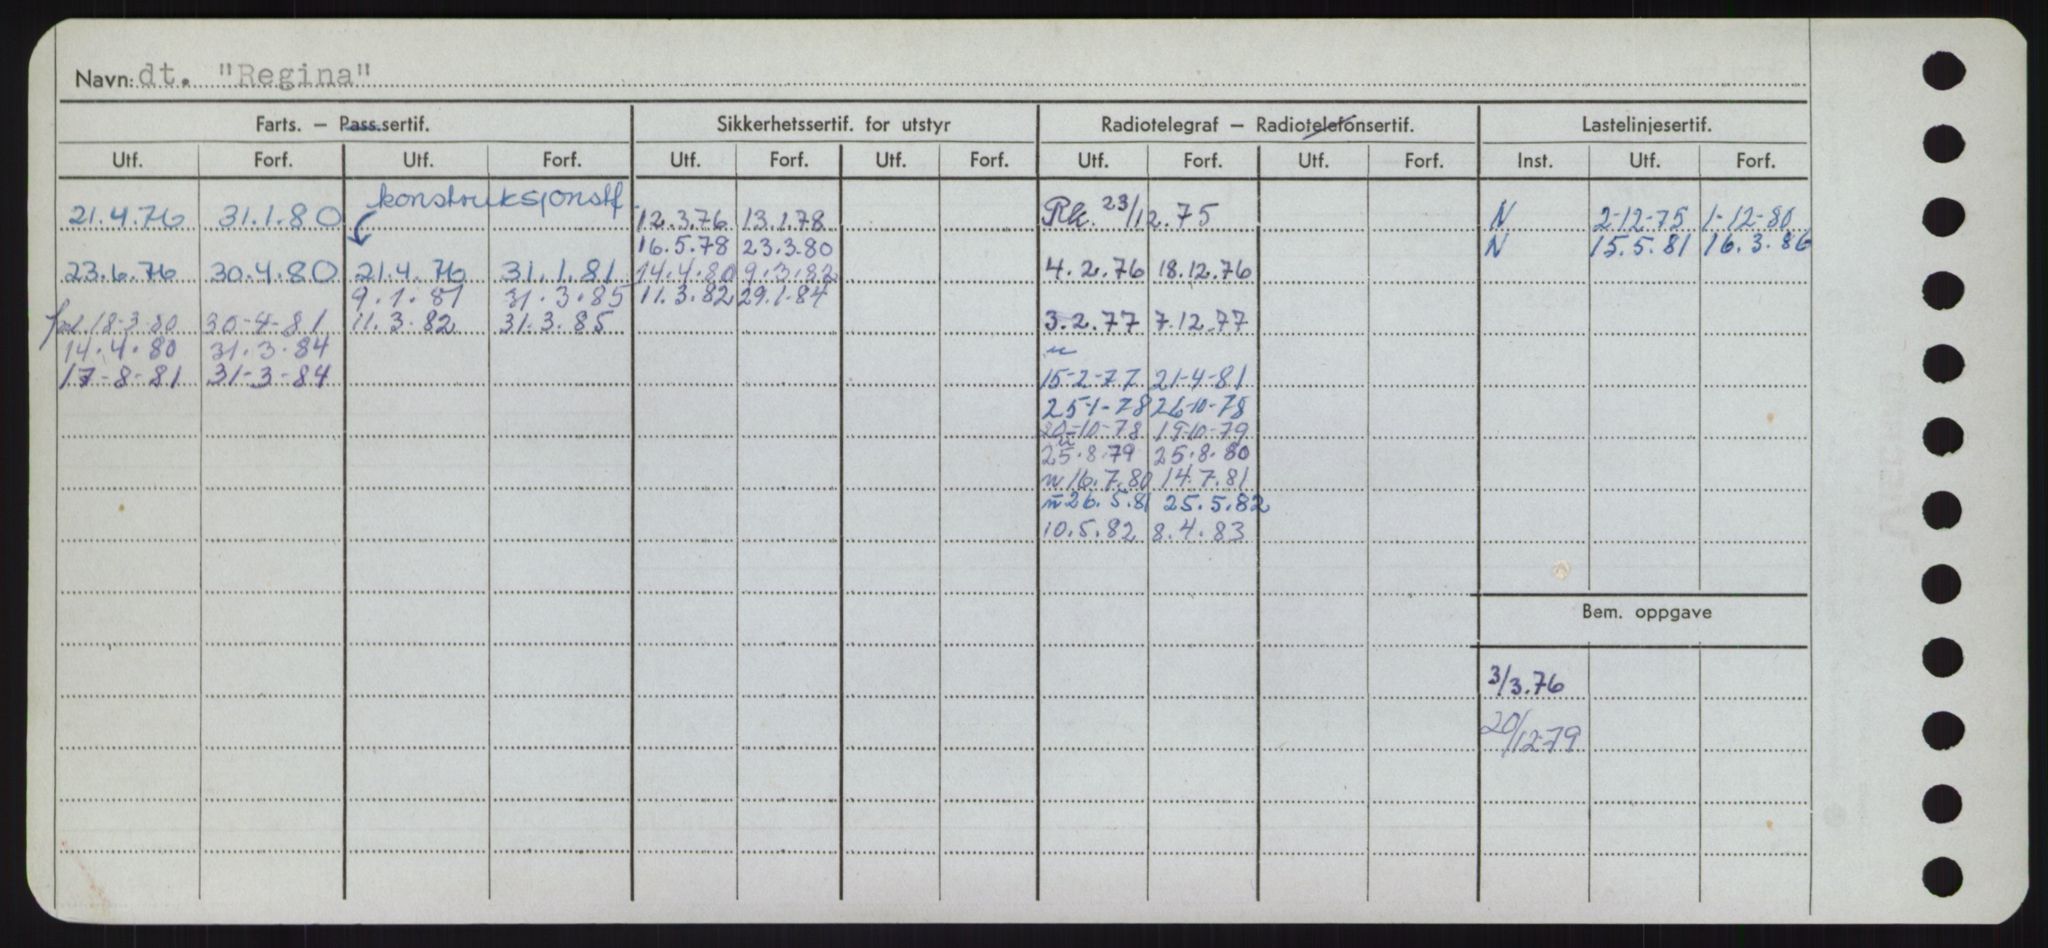 Navn: dt. "Regina"
Farts. – Pass.sertif. Sikkerhetssertif. for utstyr Radiotelegraf – Radiotelefonsertif. Lastelinjesertif.
Utf. Forf. Utf. Forf. Utf. Forf. Utf. Forf. Utf. Forf. Utf. Forf. Inst. Utf. Forf.
konstruksjonstf
21.4.76 31.1.80 12.3.76 13.1.78 Rk. 23/12.75 N 2-12-75 1-12-80
16.5.78 23.3.80 N 15.5.81 16.3.86
23.6.76 30.4.80 21.4.76 31.1.81 14.4.80 9.3.82 4.2.76 18.12.76
9.1.81 31.3.85 11.3.82 29.1.84
18-3-80 30-4-81 11.3.82 31.3.85 3.2.77 7.12.77
14.4.80 31.3.84
17-8-81 31-3-84 15-2-77 21-4-81
25-1-78 26-10-78
20-10-78 19-10-79
25.8.79 25.8.80
n 16.7.80 14.7.81
n 26.5.81 25.5.82
10.5.82 8.4.83
Bem. oppgave
3/3.76
20/12-79